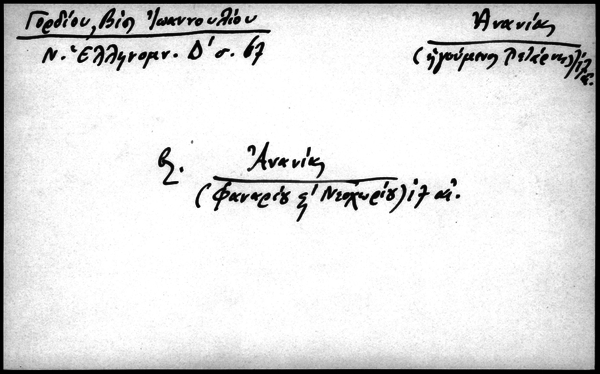 Γορδίου, Βίος Ἰωαννουλίου
Ν. Ἑλληνομν. Δ' σ. 67
Ἀνανίας
(ἡγούμενος Τετάρνης) ιζ' αἰ.
β. Ἀνανίας
(Φαναρίου & Νεοχωρίου) ιζ' αἰ.